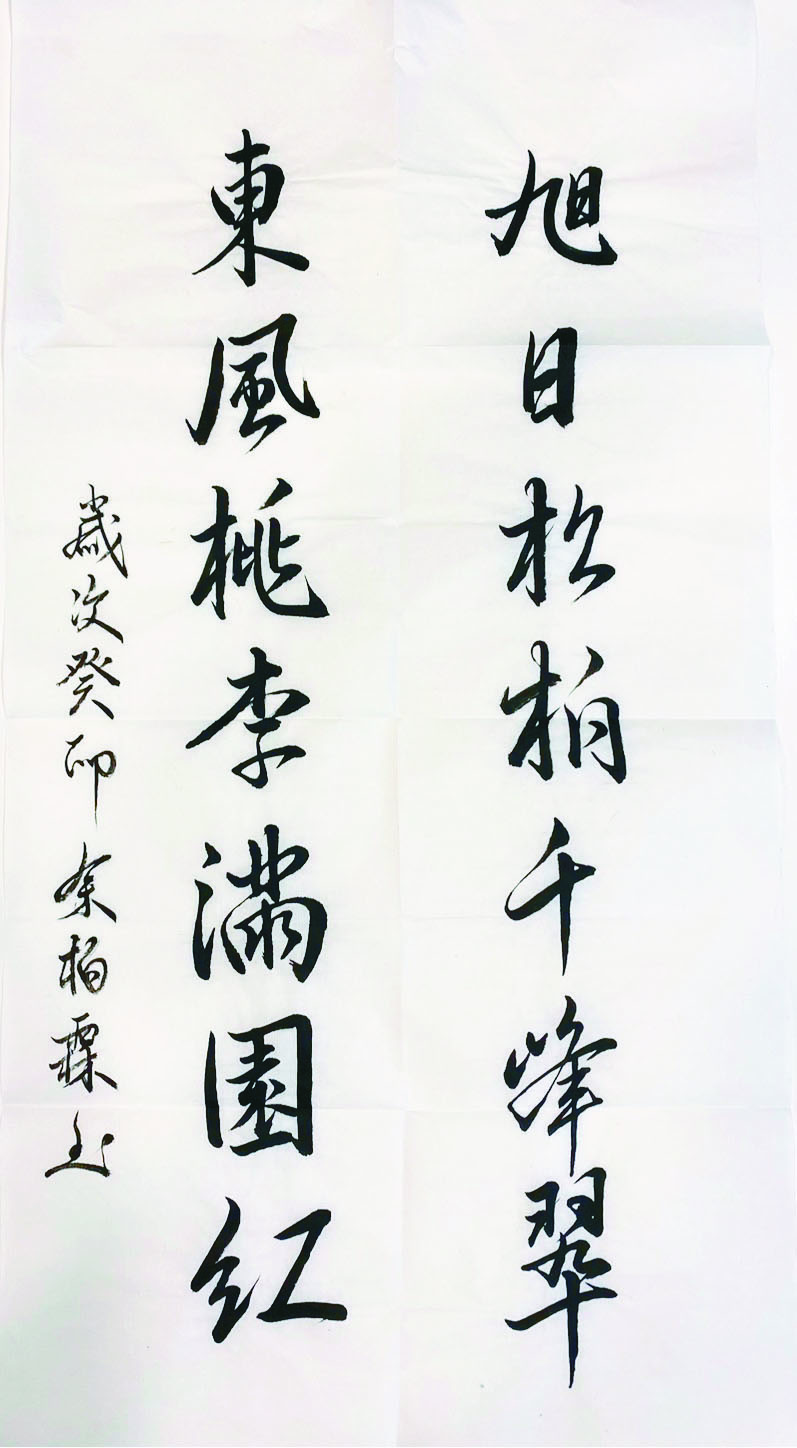 旭日松柏千峰翠
東風桃李滿園红
歲次癸卯余柏霖书